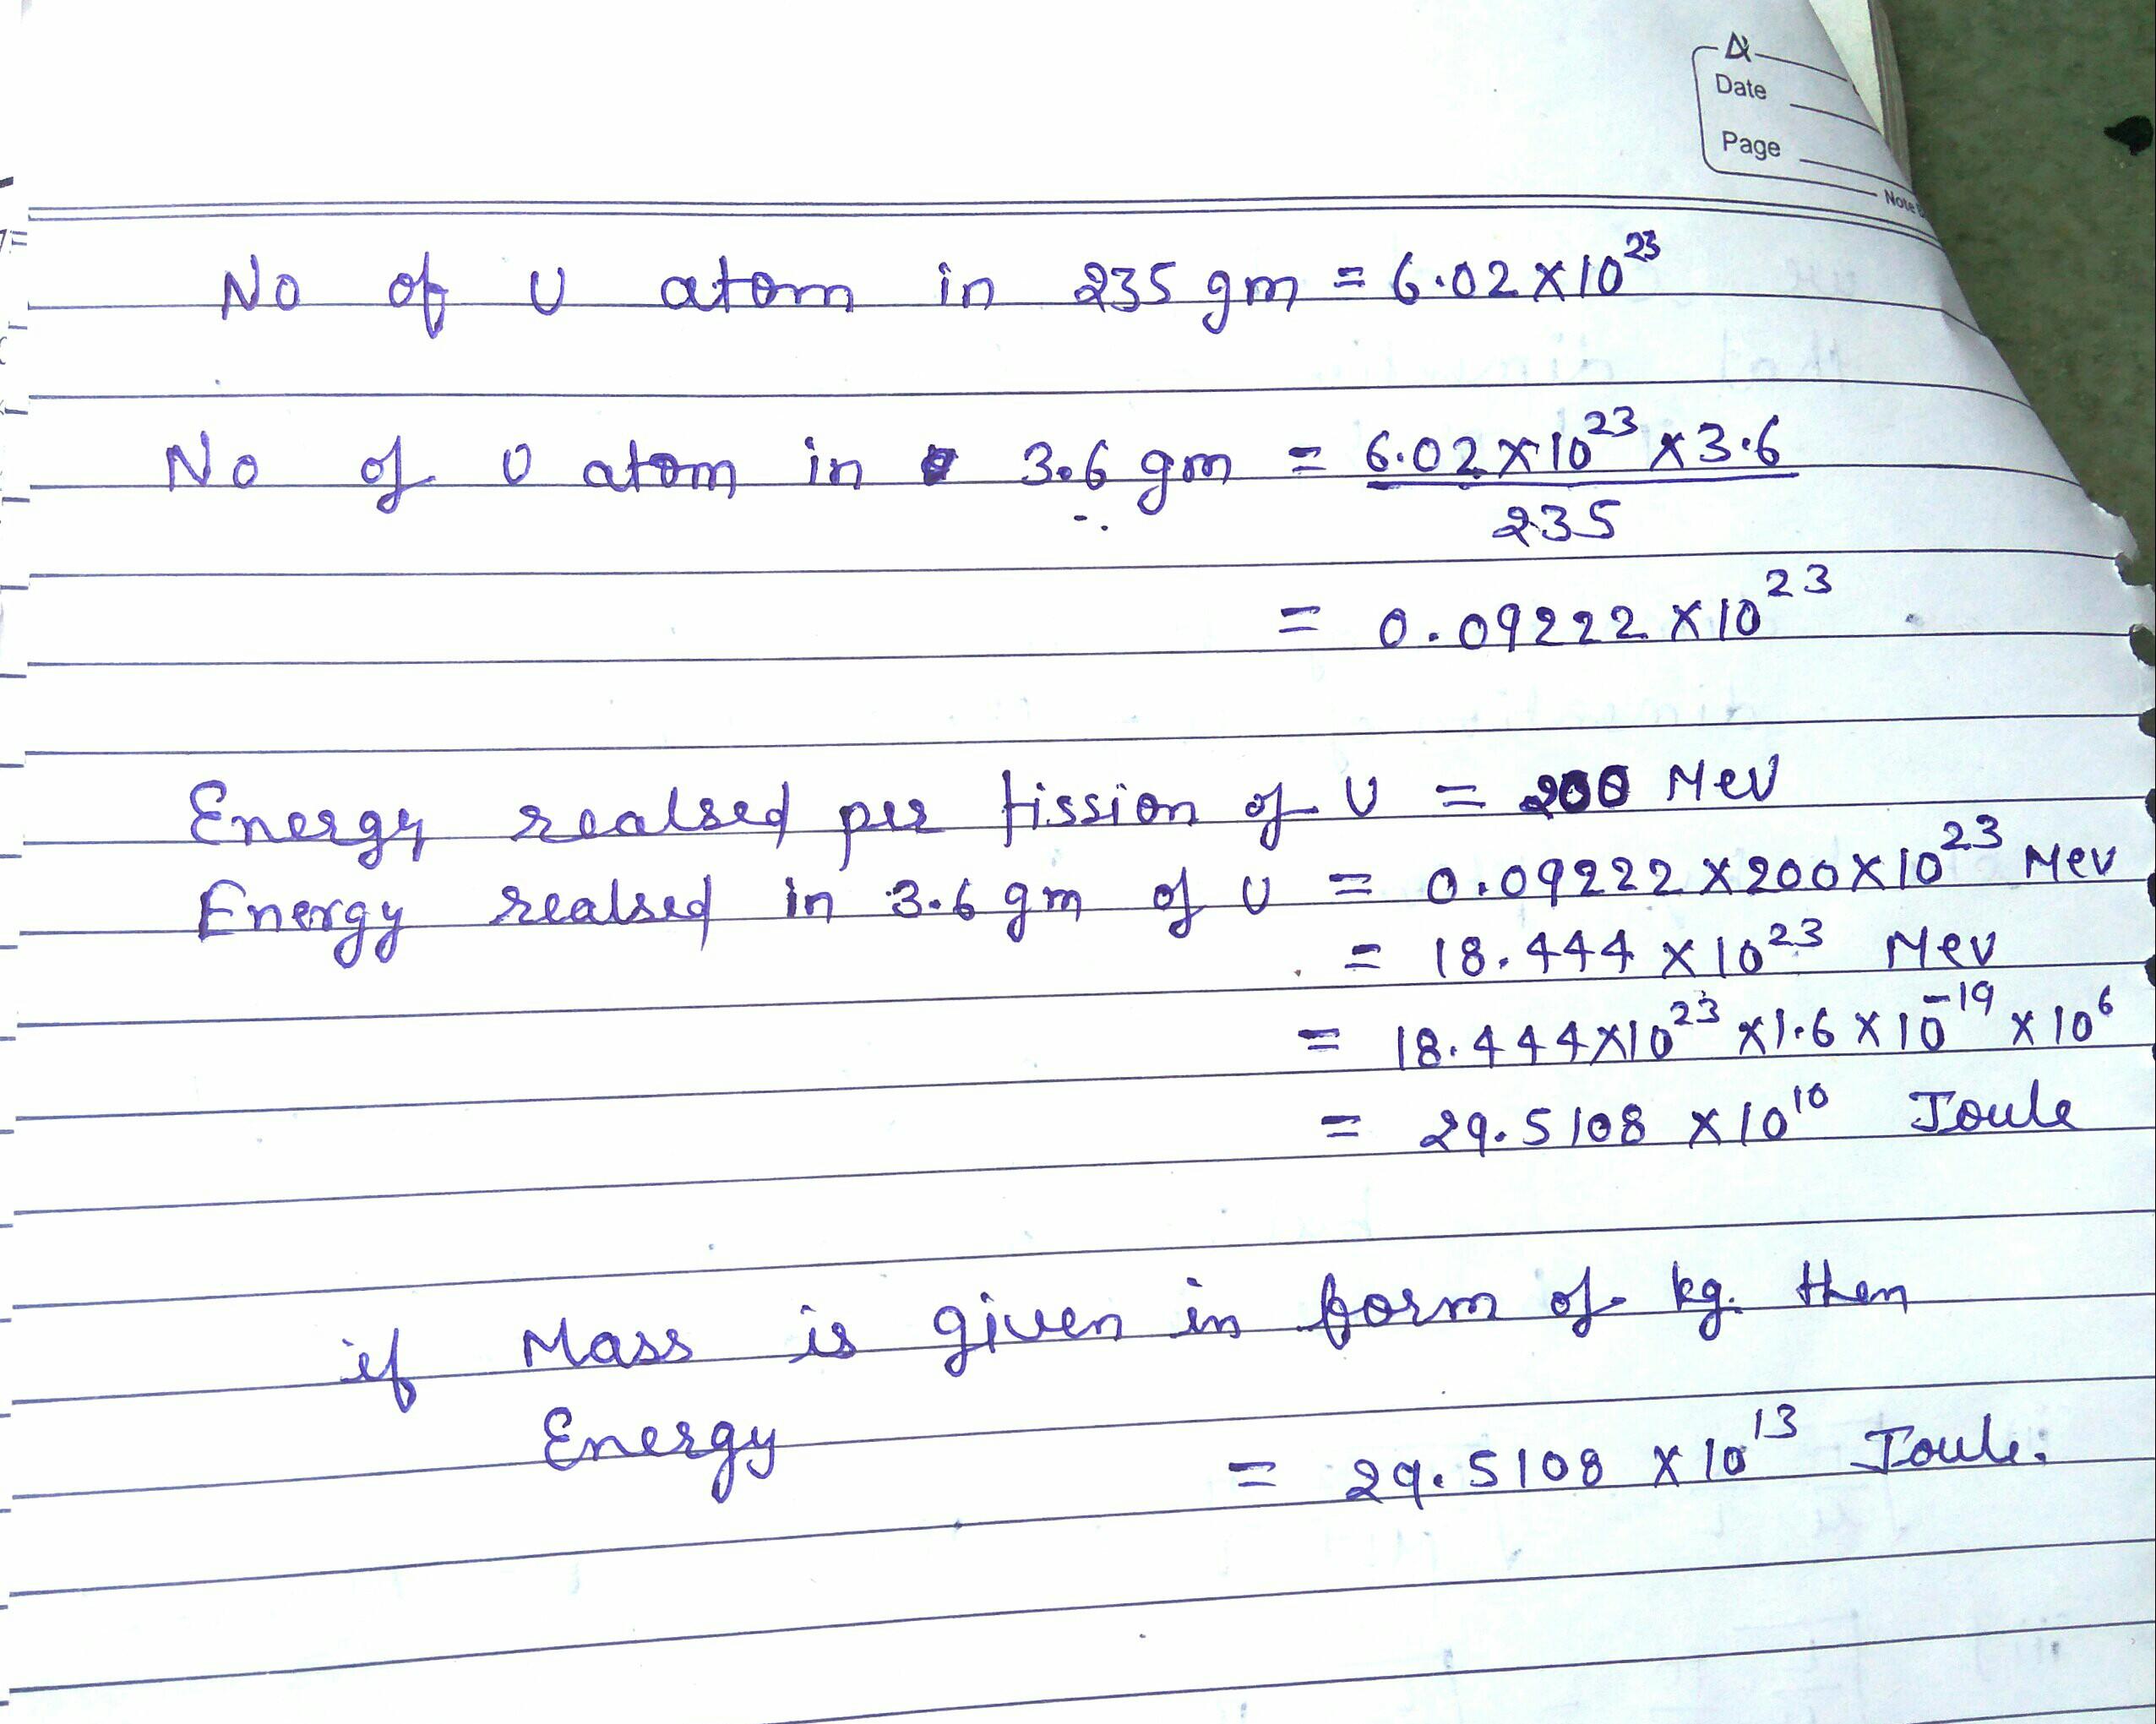 Date
Page
Note
No of U atom in 235 gm = 6.02 × 10²³
No of U atom in 3.6 gm = 6.02 × 10²³ × 3.6
235
= 0.09222 × 10²³
Energy realsed per fission of U = 200 Mev
Energy realsed in 3.6 gm of U = 0.09222 × 200 × 10²³ Mev
= 18.444 × 10²³ Mev
= 18.444 × 10²³ × 1.6 × 10⁻¹⁹ × 10⁶
= 29.5108 × 10¹⁰ Joule
if Mass is given in form of kg. then
Energy = 29.5108 × 10¹³ Joule.